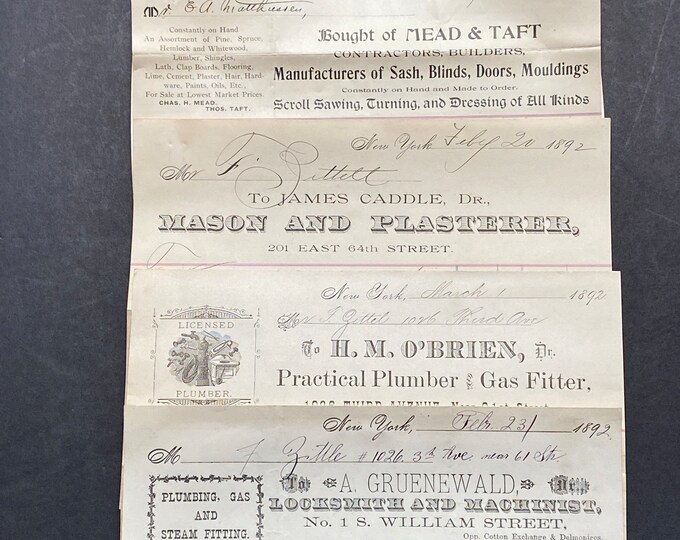 Mr. E. A. Matthiessen,
Constantly on Hand
An Assortment of Pine, Spruce,
Hemlock and Whitewood,
Lumber, Shingles,
Lath, Clap Boards, Flooring,
Lime, Cement, Plaster, Hair, Hard-
ware, Paints, Oils, Etc.,
For Sale at Lowest Market Prices.
CHAS. H. MEAD.
THOS. TAFT.
Bought of MEAD & TAFT
CONTRACTORS, BUILDERS,
Manufacturers of Sash, Blinds, Doors, Mouldings
Constantly on Hand and Made to Order.
Scroll Sawing, Turning, and Dressing of All Kinds
New York Feby 20 1892
Mr F. Zittelt
To JAMES CADDLE, DR.,
MASON AND PLASTERER,
201 EAST 64TH STREET.
New York, March 1 1892
Mr F Zittel 1026 Third Ave
LICENSED
PLUMBER.
To H. M. O'BRIEN, Dr.
Practical Plumber & Gas Fitter,
THIRD AVENUE, Near 61st Street
New York, Febr. 23/ 1892
M F Zittle # 1026. 3d Ave near 61 Str.
PLUMBING, GAS
AND
STEAM FITTING.
To A. GRUENEWALD, Dr.
LOCKSMITH AND MACHINIST,
No. 1 S. WILLIAM STREET,
Opp. Cotton Exchange & Delmonicos.